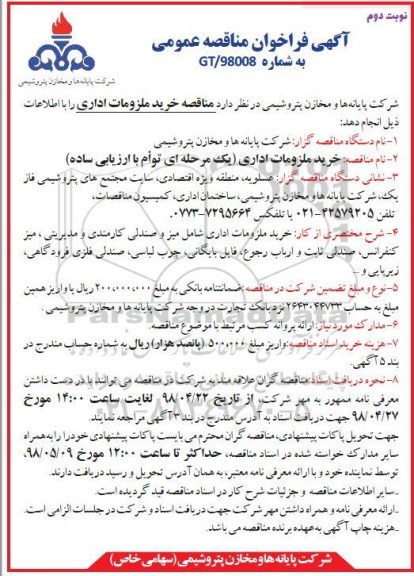 نوبت دوم
آگهی فراخوان مناقصه عمومی
به شماره GT/98008
شرکت پایانه ها و مخازن پتروشیمی
شرکت پایانه ها و مخازن پتروشیمی در نظر دارد مناقصه خرید ملزومات اداری را با اطلاعات
ذیل انجام دهد:
۱-نام دستگاه مناقصه گزار: شرکت پایانه ها و مخازن پتروشیمی
۲-نام مناقصه: خرید ملزومات اداری (یک مرحله ای توأم با ارزیابی ساده)
۳- نشانی دستگاه مناقصه گزار: عسلویه، منطقه ویژه اقتصادی، سایت مجتمع های پتروشیمی فاز
یک، شرکت پایانه ها و مخازن پتروشیمی، ساختمان اداری، کمیسیون مناقصات،
تلفن ۲۲۵۷۹۲۰۵-۰۲۱ یا تلفکس ۷۲۹۵۶۶۴-۰۷۷۳.
۴- شرح مختصری از کار: خرید ملزومات اداری شامل میز و صندلی کارمندی و مدیریتی ، میز
کنفرانس، صندلی ثابت و ارباب رجوع، فایل بایگانی، چوب لباسی، صندلی فلزی فرودگاهی،
زیرپایی و ...
۵-نوع و مبلغ تضمین شرکت در مناقصه: ضمانتنامه بانکی به مبلغ ۲۰۰،۰۰۰،۰۰۰ ریال یا واریز همین
مبلغ به حساب ۲۶۴۳۰۴۴۷۳۳ نزد بانک تجارت در وجه شرکت پایانه ها و مخازن پتروشیمی.
۶-مدارک مورد نیاز: ارائه پروانه کسب مرتبط با موضوع مناقصه.
۷- هزینه خرید اسناد مناقصه: واریز مبلغ ۵۰۰،۰۰۰ (پانصد هزار) ریال به شماره حساب مندرج در
بند ۵ آگهی.
۸- نحوه دریافت اسناد: مناقصه گران علاقه مند به شرکت در مناقصه می توانند با در دست داشتن
معرفی نامه ممهور به مهر شرکت، از تاریخ ۹۸/۰۴/۲۲ لغایت ساعت ۱۴:۰۰ مورخ
۹۸/۰۴/۲۷ جهت دریافت اسناد به آدرس مندرج در بند ۳ آگهی مراجعه نمایند.
جهت تحویل پاکات پیشنهادی، مناقصه گران محترم می بایست پاکات پیشنهادی خود را به همراه
سایر مدارک خواسته شده در اسناد مناقصه، حداکثر تا ساعت ۱۲:۰۰ مورخ ۹۸/۰۵/۰۹،
توسط نماینده خود و با ارائه معرفی نامه معتبر، به همان آدرس تحویل و رسید دریافت دارند.
-سایر اطلاعات مناقصه و جزئیات شرح کار در اسناد مناقصه قید گردیده است.
-ارائه معرفی نامه و همراه داشتن مهر شرکت جهت دریافت اسناد و شرکت در جلسات الزامی است.
-هزینه چاپ آگهی به عهده برنده مناقصه می باشد.
شرکت پایانه ها و مخازن پتروشیمی (سهامی خاص)